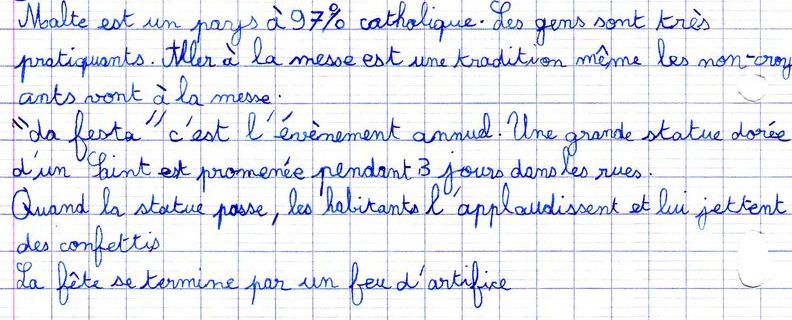 Malte est un pays à 97% catholique. Les gens sont très
pratiquants. Aller à la messe est une tradition même les non-croy
ants vont à la messe.
"da festa" c'est l'évènement annuel. Une grande statue dorée
d'un Saint est promenée pendant 3 jours dans les rues.
Quand la statue passe, les habitants l'applaudissent et lui jettent
des confettis
La fête se termine par un feu d'artifice